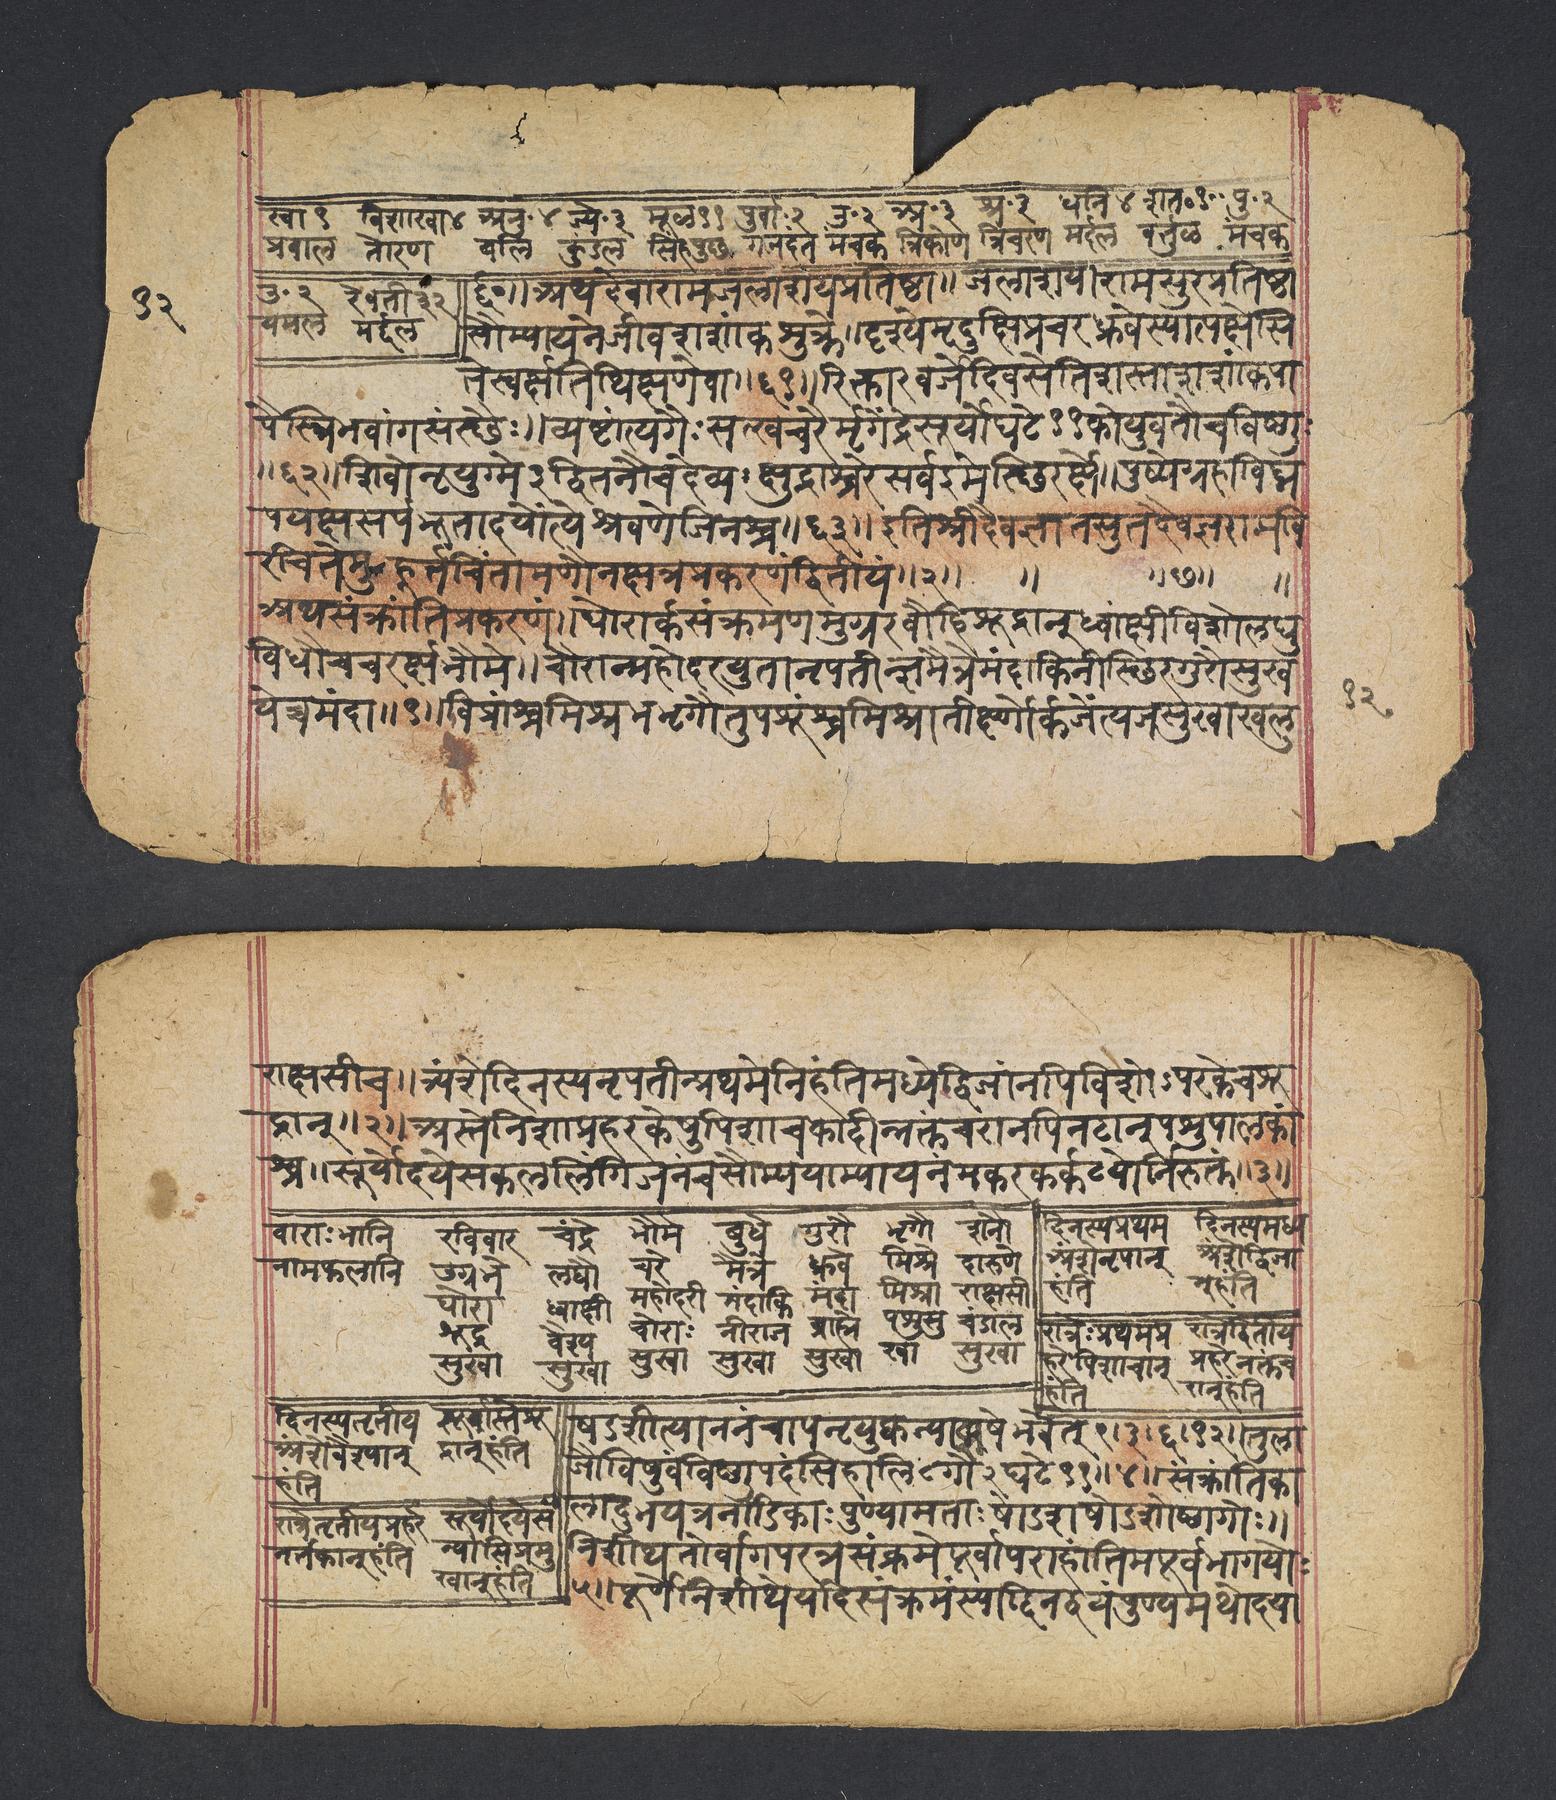 स्वा १ विशाखा ४ अनु॰ ४ ज्ये॰ ३ मूळ ११ पुर्वा॰ २ उ॰ २ अ॰ ३ श्र॰ ३ धनि ४ शत॰ १॰॰ पु॰ २
प्रवाल तोरण बलि कुंडल सिंहपुछ गजदंत मंचक त्रिकोण त्रिचरण मर्द्दल वर्तुळ मंचक
उ॰ २ रेवती ३२
यमल मर्द्दल
१२
६०॥ अथ देवारामजलाशयप्रतिष्ठा॥ जलाशयारामसुरप्रतिष्ठा
सौम्यायने जीवशशांकशुक्रे॥ दृश्ये मृदुक्षिप्रचरध्रुवे स्यात्पक्षे सि
ते स्वर्क्षतिथिक्षणे वा॥६१॥ रिक्तारवर्जे दिवसेतिशस्ता शशांकपा
पैस्त्रिभवांगसंस्थैः॥ व्यष्टांत्यगैः सत्खचरैर्मृगेंद्रे सूर्यो घटे ११ को युवतौ च विष्णुः
॥६२॥ शिवो नृयुग्मे ३ द्वितनौ च देव्यः क्षुद्राश्चरे सर्व इमे स्थिरर्क्षे॥ पुष्ये ग्रहा विघ्न
पयक्षसर्पभूतादयोंत्ये श्रवणे जिनश्च॥६३॥ इति श्रीदैवज्ञानंतसुतदैवज्ञरामवि
रचिते मुहूर्तचिंतामणौ नक्षत्रप्रकरणं द्वितीयं॥२॥ ॥ ॥छ॥ ॥
अथ संक्रांतिप्रकरणं॥ घोरार्कसंक्रमणमुग्ररवौ हि शूद्रान् ध्वांक्षी विशो लघु
विधौ च चरर्क्षभौमे॥ चौरान्महोदरयुता नृपतीन् ज्ञमैत्रे मंदाकिनी स्थिरगुरौ सुखं
येच्च मंदा॥१॥ विप्रांश्च मिश्रभभृगौ तु पशूंश्च मिश्रा तीक्ष्णेर्कजेंत्यजसुखा खलु
१२
राक्षसी च॥ त्र्यंशे दिनस्य नृपतीन्प्रथमे निहंति मध्ये द्विजानपि विशोऽपरके च शू
द्रान्॥२॥ अस्ते निशाप्रहरकेषु पिशाचकादीन्नक्तंचरानपि नटान् पशुपालकां
श्च॥ सूर्योदये सकललिंगिजनं च सौम्ययाम्यायनं मकरकर्कटयोर्निरुक्तं॥३॥
वाराः भानि रविवार चंद्रे भौमे बुधे गुरौ भृगौ शनौ
नामफलानि उग्रभे लघौ चरे मैत्रे ध्रुवे मिश्रे दारुणे
घोरा ध्वांक्षी महोदरी मंदाकि मंदा मिश्रा राक्षसी
शूद्र वैश्य चोराः नीराज ब्राह्मे पशुसु चंडाल
सुखा सुखा सुखा सुखा सुखा खा सुखा
दिनस्यप्रथम दिनस्यमध्य
अंशे नृपान् अंशे द्विजा
हंति न् हंति
रात्रेः प्रथमप्र रात्रिद्वितीय
हरे पिशाचान् प्रहरे नक्तंच
हंति रान् हंति
दिनस्यतृतीय सूर्यास्ते शू
अंशे वैश्यान् द्रान् हंति
हंति
रात्रितृतीयप्रहरे सूर्योदये सं
नर्तकान् हंति न्यासिप्रमु
खान् हंति
षडशीत्याननं चापनृयुक्कन्याझषे भवेत् ९।३।६।१२॥ तुला
जौ विषुवं विष्णुपदं सिंहालि ८ गो २ घटे ११॥४॥ संक्रांतिका
लादुभयत्र नाडिकाः पुण्या मताः षोडशषोडशोष्णगोः॥
निशीथतोर्वागपरत्र संक्रमे पूर्वापराहांतिमपूर्वभागयोः
५॥ पूर्णे निशीथे यदि संक्रमः स्याद्दिनद्वयं पुण्यमथोदया